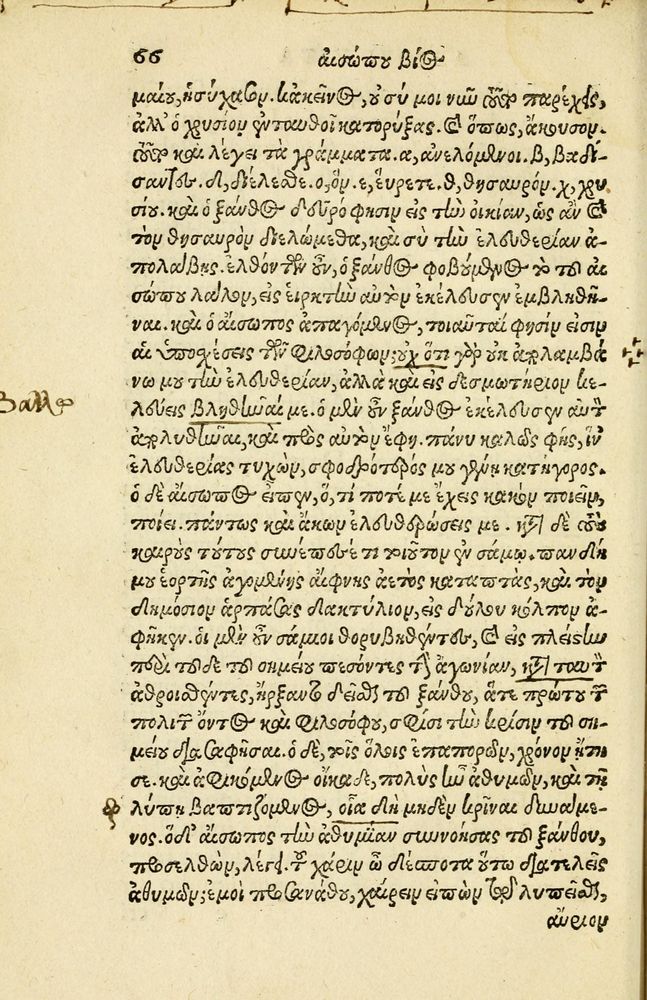 66 αἰσώπου βίος
μαίου, ἡσύχασον. κἀκεῖνος, οὐ σύ μοι νῦν τοῦτον παρέχεις,
ἀλλ' ὁ χρυσίον ἐνταυθοῖ κατορύξας. καὶ ὅπως, ἄκουσον.
τοῦτον καὶ λέγει τὰ γράμματα. α, ἀνελόμενοι. β, βαδί-
σαντες. δ, διέλεσθε. ο, ὃν. ε, εὕρετε. θ, θησαυρόν. χ, χρυ
σίου. καὶ ὁ ξάνθος δεῦρό φησιν εἰς τὴν οἰκίαν, ὡς ἂν καὶ
τὸν θησαυρὸν διελώμεθα, καὶ σὺ τὴν ἐλευθερίαν ἀ-
πολάβῃς. ἐλθόντων οὖν, ὁ ξάνθος φοβούμενος τὸ τοῦ αἰ
σώπου λάλον, εἰς εἱρκτὴν αὐτὸν ἐκέλευσεν ἐμβληθῆ-
ναι. καὶ ὁ αἴσωπος ἀπαγόμενος, τοιαῦταί φησίν εἰσιν
αἱ ὑποσχέσεις τῶν φιλοσόφων; οὐχ ὅτι γὰρ οὐκ ἀπολαμβά
νω μου τὴν ἐλευθερίαν, ἀλλὰ καὶ εἰς δεσμωτήριον κε-
λεύεις βληθῆναί με. ὁ μὲν οὖν ξάνθος ἐκέλευσεν αὐτὸν
ἀπολυθῆναι, καὶ πρὸς αὐτὸν ἔφη. πάνυ καλῶς φής, ἵν'
ἐλευθερίας τυχὼν, σφοδρότερός μου γένῃ κατήγορος.
ὁ δὲ αἴσωπος εἶπεν, ὅ, τί ποτέ με ἔχεις κακὸν ποιεῖν,
ποίει. πάντως καὶ ἄκων ἐλευθερώσεις με. κατὰ δὲ τοὺς
καιροὺς τούτους συνέπεσέ τι τοιοῦτον ἐν σάμῳ. πανδή
μου ἑορτῆς ἀγομένης αἴφνης ἀετὸς καταπτάς, καὶ τὸν
δημόσιον ἁρπάσας δακτύλιον, εἰς δούλου κόλπον ἀ-
φῆκεν. οἱ μὲν οὖν σάμιοι θορυβηθέντες, καὶ εἰς πλείστην
περὶ τοῦδε τοῦ σημείου πεσόντες τὴν ἀγωνίαν, κατὰ ταυτὸν
ἀθροισθέντες, ἤρξαντο δεῖσθαι τοῦ ξάνθου, ἅτε πρώτου τῶν
πολιτῶν ὄντος καὶ φιλοσόφου, σφίσι τὴν κρίσιν τοῦ ση-
μείου διασαφῆσαι. ὁ δὲ, τοῖς ὅλοις ἐπαπορῶν, χρόνον ᾔτη
σε. καὶ ἀφικόμενος οἴκαδε, πολὺς ἦν ἀθυμῶν, καὶ τῇ
λύπῃ βαπτιζόμενος, οἷα δὴ μηδὲν κρῖναι δυνάμε-
νος. ὁ δ' αἴσωπος τὴν ἀθυμίαν συννοήσας τοῦ ξάνθου,
προσελθὼν, λέγει. τοῦ χάριν ὦ δέσποτα οὕτω διατελεῖς
ἀθυμῶν; ἐμοὶ προσανάθου, χαίρειν εἰπὼν τῷ λυπεῖσθαι,
αὔριον